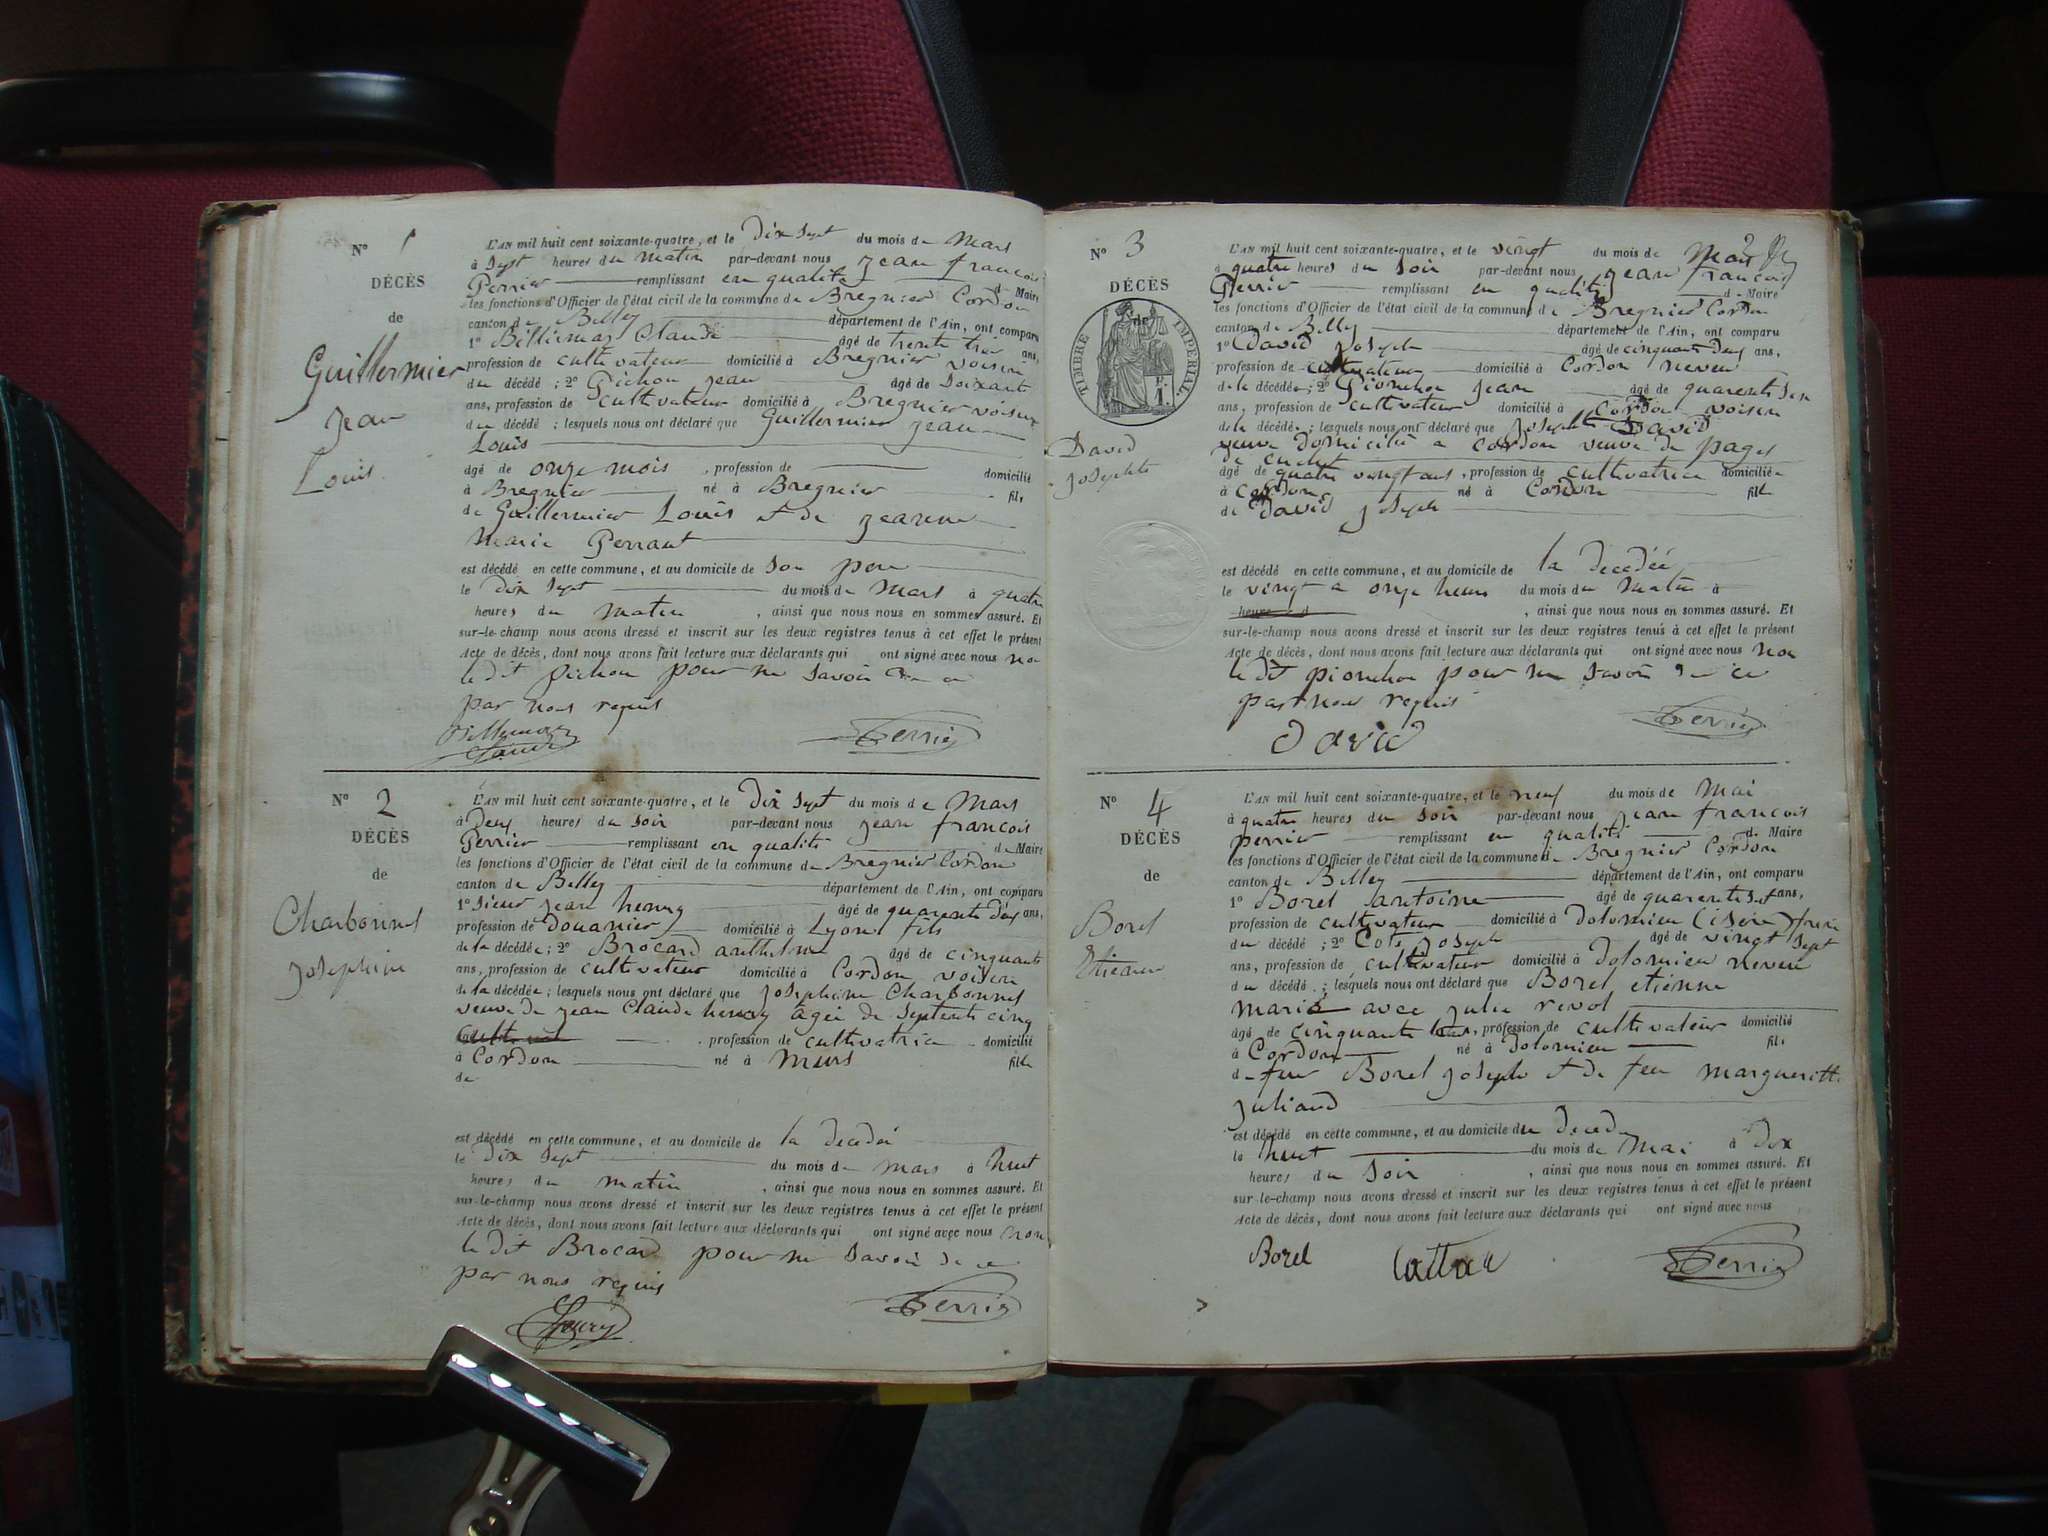 N° 1
DÉCÈS
de
Guillermier
Jean
Louis.
L'AN mil huit cent soixante-quatre, et le Dix Sept du mois de Mars
à Sept heures du matin par-devant nous Jean francois
Perrier remplissant en qualité de Maire
les fonctions d'Officier de l'état civil de la commune de Bregnier Cordon
canton de Belley département de l'Ain, ont comparu
1° Billiemaz Claude âgé de trente trois ans,
profession de cultivateur domicilié à Bregnier voisin
du décédé ; 2° Pichon Jean âgé de Soixante
ans, profession de cultivateur domicilié à Bregnier voisin
du décédé ; lesquels nous ont déclaré que Guillermier Jean
Louis
âgé de onze mois , profession de domicilié
à Bregnier né à Bregnier fils
de Guillermier Louis et de Jeanne
Marie Perraut
est décédé en cette commune, et au domicile de son pere
le Dix Sept du mois de Mars à quatre
heures du matin , ainsi que nous nous en sommes assuré. Et
sur-le-champ nous avons dressé et inscrit sur les deux registres tenus à cet effet le présent
Acte de décès, dont nous avons fait lecture aux déclarants qui ont signé avec nous non
le dit pichon pour ne savoir de ce
par nous requis
Perrier
N° 2
DÉCÈS
de
Charbonnel
Josephine
L'AN mil huit cent soixante-quatre, et le Dix Sept du mois de Mars
à Deux heures du Soir par-devant nous Jean francois
Perrier remplissant en qualité de Maire
les fonctions d'Officier de l'état civil de la commune de Bregnier Cordon
canton de Belley département de l'Ain, ont comparu
1° Sieur Jean henry âgé de quarente deux ans,
profession de Douanier domicilié à Lyon fils
de la décédée ; 2° Brocard anthelme âgé de cinquante
ans, profession de cultivateur domicilié à Cordon voisin
de la décédée ; lesquels nous ont déclaré que Josephine Charbonnel
veuve de Jean Claude henry agée de Septente cinq
profession de cultivatrice domicilié
à Cordon né à Murs fille
de
est décédé en cette commune, et au domicile de la decedée
le Dix Sept du mois de Mars à huit
heures du matin , ainsi que nous nous en sommes assuré. Et
sur-le-champ nous avons dressé et inscrit sur les deux registres tenus à cet effet le présent
Acte de décès, dont nous avons fait lecture aux déclarants qui ont signé avec nous non
le dit Brocard pour ne savoir de ce
par nous requis
henry Perrier
N° 3
DÉCÈS
de
TIMBRE IMPÉRIAL
David
Josephte
L'AN mil huit cent soixante-quatre, et le vingt du mois de Mars
à quatre heures du Soir par-devant nous Jean francois
Perrier remplissant en qualité de Maire
les fonctions d'Officier de l'état civil de la commune de Bregnier Cordon
canton de Belley département de l'Ain, ont comparu
1° David Joseph âgé de cinquante deux ans,
profession de cultivateur domicilié à Cordon neveu
de la décédée ; 2° Pionchon Jean âgé de quarente
ans, profession de cultivateur domicilié à Cordon voisin
de la décédée ; lesquels nous ont déclaré que Josephte David
veuve domiciliée a cordon veuve de pages
âgé de quatre vingt ans , profession de cultivatrice domiciliée
à Cordon né à Cordon fille
de David Joseph
est décédé en cette commune, et au domicile de la decedée
le vingt a onze heures du mois du Matin à
heures d , ainsi que nous nous en sommes assuré. Et
sur-le-champ nous avons dressé et inscrit sur les deux registres tenus à cet effet le présent
Acte de décès, dont nous avons fait lecture aux déclarants qui ont signé avec nous non
le dit pionchon pour ne savoir de ce
par nous requis
David Perrier
N° 4
DÉCÈS
de
Borel
Etienne
L'AN mil huit cent soixante-quatre, et le neuf du mois de Mai
à quatre heures du Soir par-devant nous Jean francois
perrier remplissant en qualité de Maire
les fonctions d'Officier de l'état civil de la commune de Bregnier Cordon
canton de Belley département de l'Ain, ont comparu
1° Borel antoine âgé de quarente sept ans,
profession de cultivateur domicilié à Dolomieu (isère) frère
du décédé ; 2° Joseph âgé de vingt sept
ans, profession de cultivateur domicilié à Dolomieu neveu
du décédé ; lesquels nous ont déclaré que Borel etienne
marié avec Julie revol
âgé de cinquante ans, profession de cultivateur domicilié
à Cordon né à Dolomieu fils
de feu Borel Joseph et de feu Margueritte
Juliand
est décédé en cette commune, et au domicile du Decedé
le huit du mois de Mai à Dix
heures du Soir , ainsi que nous nous en sommes assuré. Et
sur-le-champ nous avons dressé et inscrit sur les deux registres tenus à cet effet le présent
Acte de décès, dont nous avons fait lecture aux déclarants qui ont signé avec nous
Borel Perrier